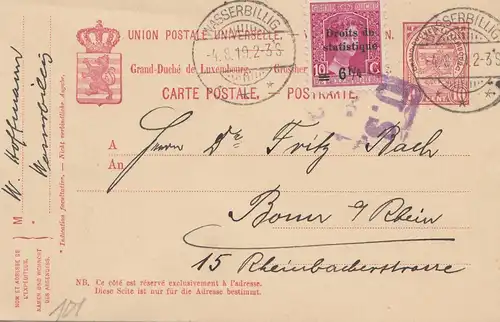 WASSERBILLIG
-4.8.19.2-3S
WASSERBILLIG
-4.8.19.2-3S
UNION POSTALE UNIVERSELLE.
Grand-Duché de Luxembourg.
CARTE POSTALE. – POSTKARTE.
Droits de
statistique
10 C
6 ¼
A
An
Herrn Dr. Fritz Rach
Bonn a/Rhein
15 Rheinbacherstrasse
NB. Ce côté est réservé exclusivement à l'adresse.
Diese Seite ist nur für die Adresse bestimmt.
W. Hoffmann
Wasserbillig
M
NOM ET ADRESSE DE
L'EXPÉDITEUR.
NAMEN UND WOHNORT
DES ABSENDERS.
* Indication facultative. — Nicht verbindliche Angabe.
101